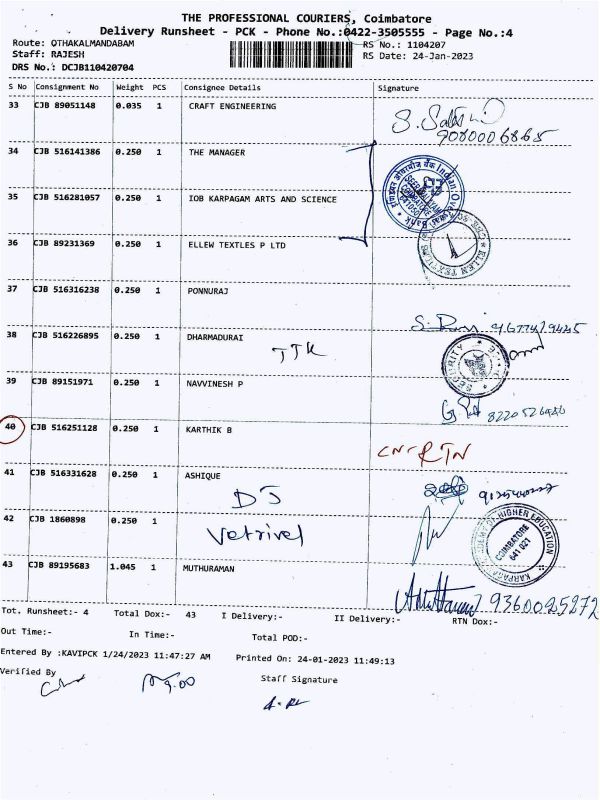 THE PROFESSIONAL COURIERS, Coimbatore
Delivery Runsheet - PCK - Phone No.:0422-3505555 - Page No.:4
Route: OTHAKALMANDABAM
RS No.: 1104207
Staff: RAJESH
RS Date: 24-Jan-2023
DRS No.: DCJB110420704
S No Consignment No Weight PCS Consignee Details Signature
33 CJB 89051148 0.035 1 CRAFT ENGINEERING
9080006865
34 CJB 516141386 0.250 1 THE MANAGER
35 CJB 516281057 0.250 1 IOB KARPAGAM ARTS AND SCIENCE
36 CJB 89231369 0.250 1 ELLEW TEXTLES P LTD
37 CJB 516316238 0.250 1 PONNURAJ
38 CJB 516226895 0.250 1 DHARMADURAI
TTK
SECURITY
39 CJB 89151971 0.250 1 NAVVINESH P
8220526986
40 CJB 516251128 0.250 1 KARTHIK B
CNC RTN
41 CJB 516331628 0.250 1 ASHIQUE
DJ
42 CJB 1860898 0.250 1
Vetrivel
HIGHER EDUCATION
COIMBATORE
641 021
43 CJB 89195683 1.045 1 MUTHURAMAN
9360025272
Tot. Runsheet:- 4 Total Dox:- 43 I Delivery:- II Delivery:- RTN Dox:-
Out Time:- In Time:- Total POD:-
Entered By :KAVIPCK 1/24/2023 11:47:27 AM Printed On: 24-01-2023 11:49:13
Verified By Staff Signature